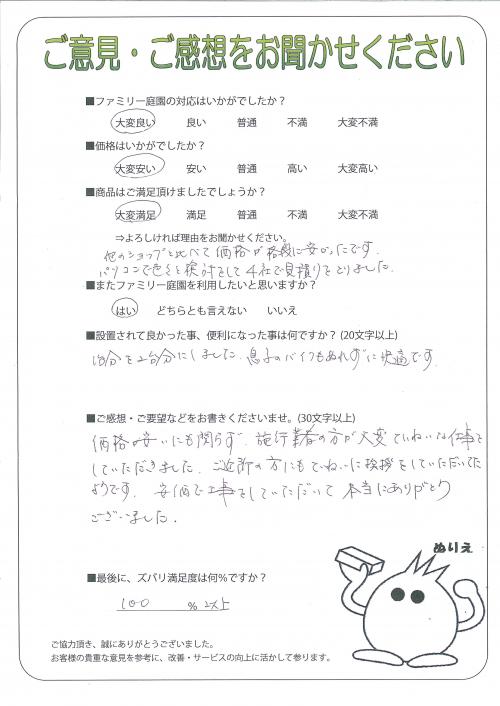 ご意見・ご感想をお聞かせください
■ファミリー庭園の対応はいかがでしたか?
大変良い 良い 普通 不満 大変不満
■価格はいかがでしたか?
大変安い 安い 普通 高い 大変高い
■商品はご満足頂けましたでしょうか?
大変満足 満足 普通 不満 大変不満
⇒よろしければ理由をお聞かせください。
他のショップと比べて価格が格段に安かったです。
パソコンで色々と検討をして4社で見積りをとりました。
■またファミリー庭園を利用したいと思いますか?
はい どちらとも言えない いいえ
■設置されて良かった事、便利になった事は何ですか? (20文字以上)
1台分を2台分にしました。息子のバイクもぬれずに快適です。
■ご感想・ご要望などをお書きくださいませ。(30文字以上)
価格が安いにも関らず、施行業者の方が大変ていねいな仕事を
していただきました。ご近所の方にもていねいに挨拶をしていただいてた
ようです。安価で工事をしていただいて本当にありがとう
ございました。
ぬりえ
■最後に、ズバリ満足度は何%ですか?
100 %以上
ご協力頂き、誠にありがとうございました。
お客様の貴重な意見を参考に、改善・サービスの向上に活かして参ります。